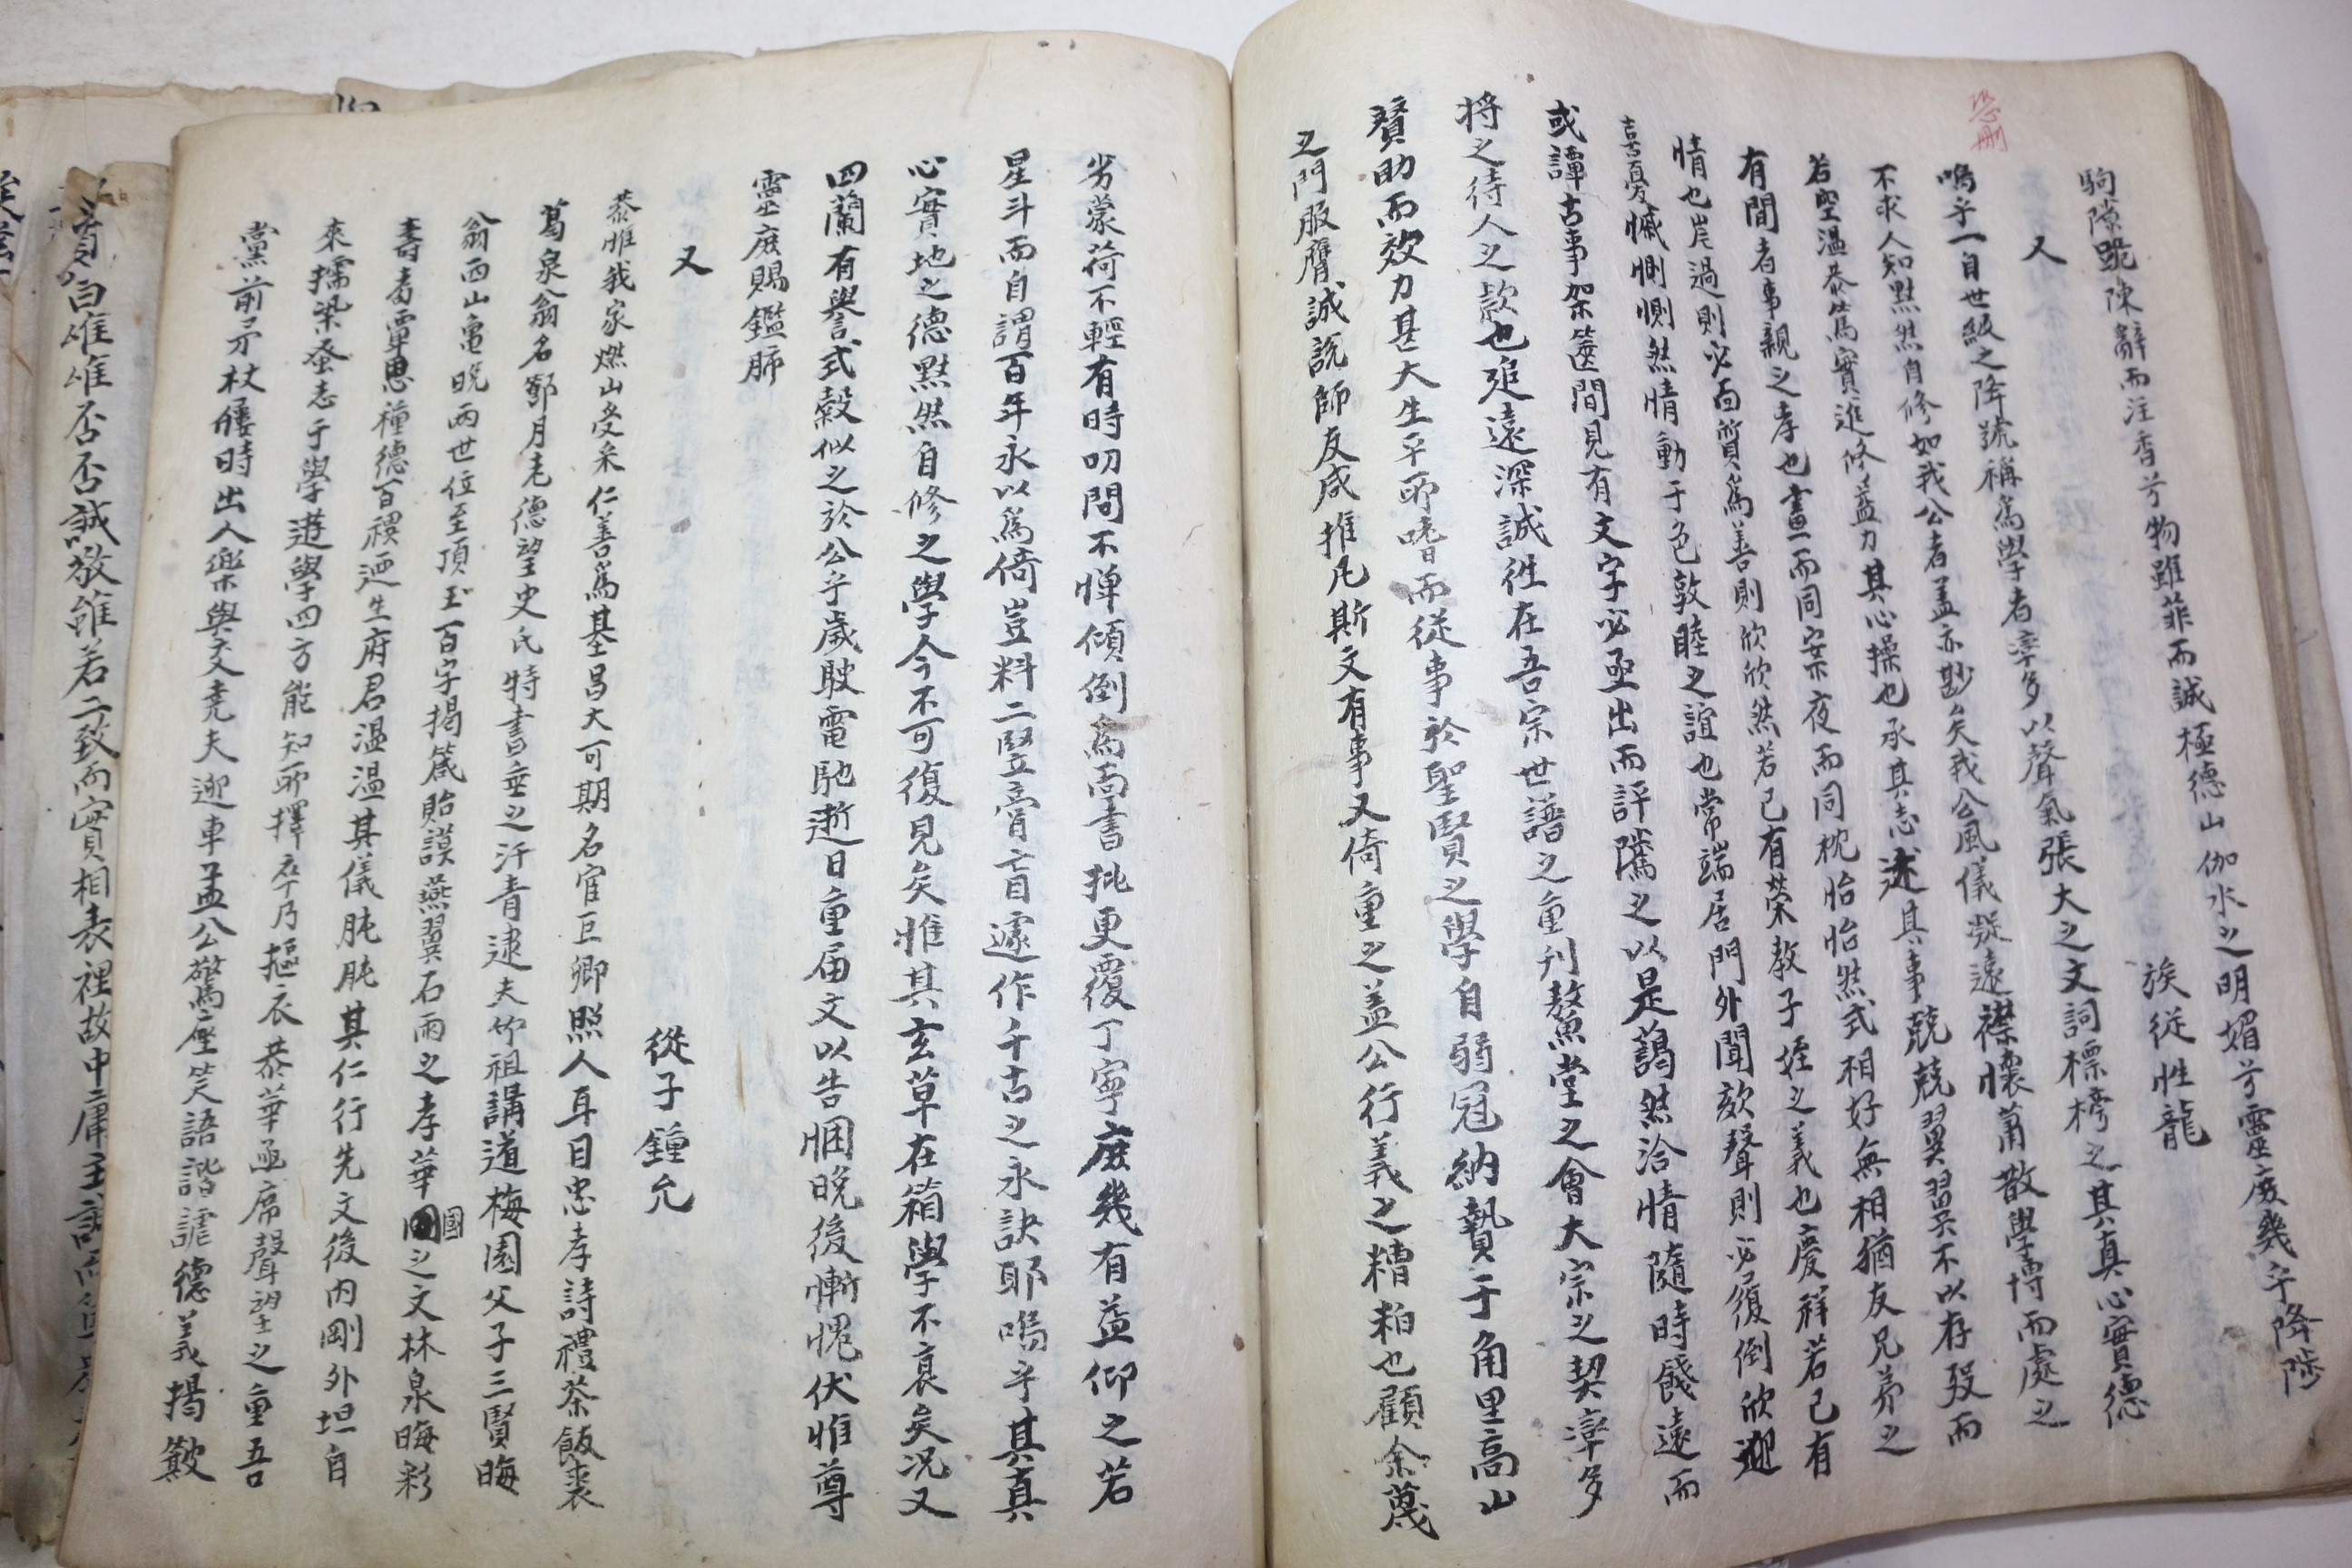 恐刪
駒隙跪陳辭而注香兮物雖菲而誠極德山伽水之明媚兮靈庶幾乎降陟
又
族從性龍
嗚乎一自世級之降號稱爲學者率多以聲氣張大之文詞標榜之其真心實德
不求人知默然自修如我公者盖亦尠矣我公風儀凝遠襟懷蕭散學博而處之
若聖溫恭篤實進修益力其心操也承其志述其事兢兢翼翼不以存歿而
有間者事親之孝也晝而同案夜而同枕怡怡然式相好無相猶友兄弟之
情也崑過則必面質爲善則欣欣然若已有榮教子姪之義也慶祥若己有
喜憂慽惻惻然情動于色敦睦之誼也常端居門外聞欬聲則必復倒欣迎
或譚古事架箧間見有文字必亟出而評隲之以是藹然洽情隨時餞遠而
將之待人之款也追遠深誠往在吾宗世譜之重刊鰲堂之會大宗之契率多
賛助而效力甚大生平所嗜而從事於聖賢之學自弱冠納贄于角里高山
之門服膺誠說師友咸推凡斯文有事又倚重之盖公行義之糟粕也顧余蔑
劣蒙荷不輕有時叨問不憚傾倒爲尚書批更覆丁寧庶幾有益仰之若
星斗而自謂百年永以爲倚豈料二竪膏肓遽作千古之永訣耶嗚乎其真
心實地之德默然自修之學今不可復見矣惟其玄草在箱學不衰矣况又
四蘭有與言式穀似之於公乎歲駛電馳逝日重届文以告悃晚後慚愧伏惟尊
靈庶賜鑑肺
又
從子鍾允
恭惟我家燃山受采仁善爲基昌大可期名官巨卿照人耳目忠孝詩禮茶飯裘
葛泉翁名鄒月老德望史氏特書垂之汗青逮夫竹祖講道梅園父子三賢晦
翁西山龜晚兩世位至頂玉百字揭箴貽謨燕翼石雨之孝華國之文林泉晦彩
壽耈覃思種德百禩迺生府君溫溫其儀肫肫其仁行先文後內剛外坦自
來擩染蚤志于學遊學四方能知所擇卒乃摳衣恭華函席聲望之重吾
黨前矛杖屨時出人樂與交堯夫迎車孟公驚座笑語諧謔德義揚歡
賓白雄雄否否誠敬雖若二致而實相表裡故中庸主誠而